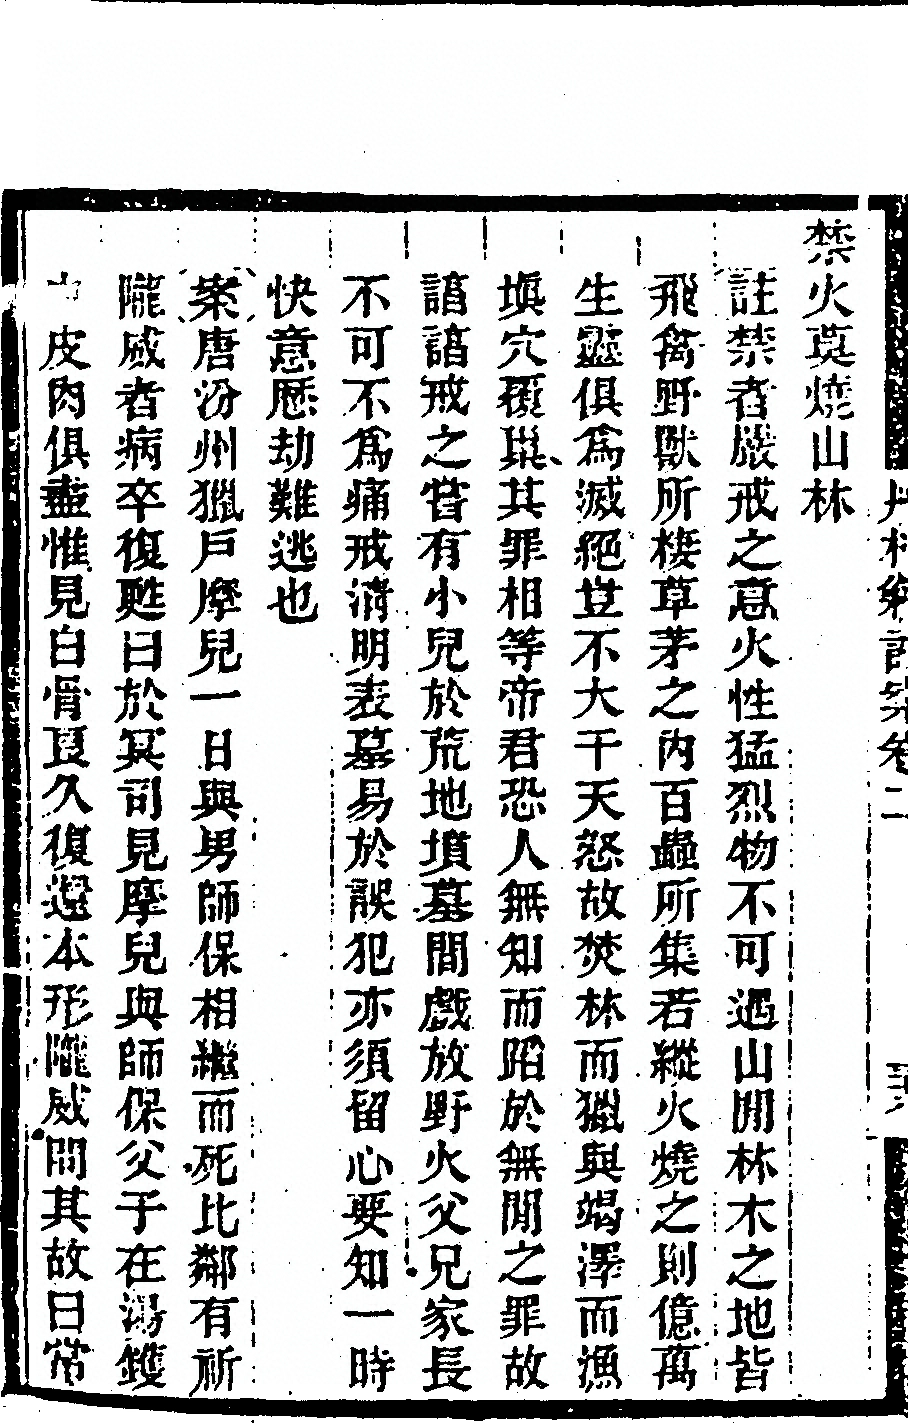 禁火莫燒山林
註禁者嚴戒之意火性猛烈物不可遇山開林木之地皆
飛禽野獸所棲草茅之內百蟲所集若縱火燒之則億萬
生靈俱為滅絕豈不大干天怒故焚林而獵與竭澤而漁
塡穴覆巢其罪相等帝君恐人無知而蹈於無間之罪故
諄諄戒之嘗有小兒於荒地墳墓間戲放野火父兄家長
不可不爲痛戒清明表墓易於誤犯亦須留心要知一時
快意歷劫難逃也
案唐汾州獵戶摩兒一日與男師保相繼而死比鄰有祈
隴威者病卒復甦曰於冥司見摩兒與師保父子在湯鑊
中皮肉俱盡惟見白骨良久復還本形隴威問其故曰常
丹桂籍註案卷二